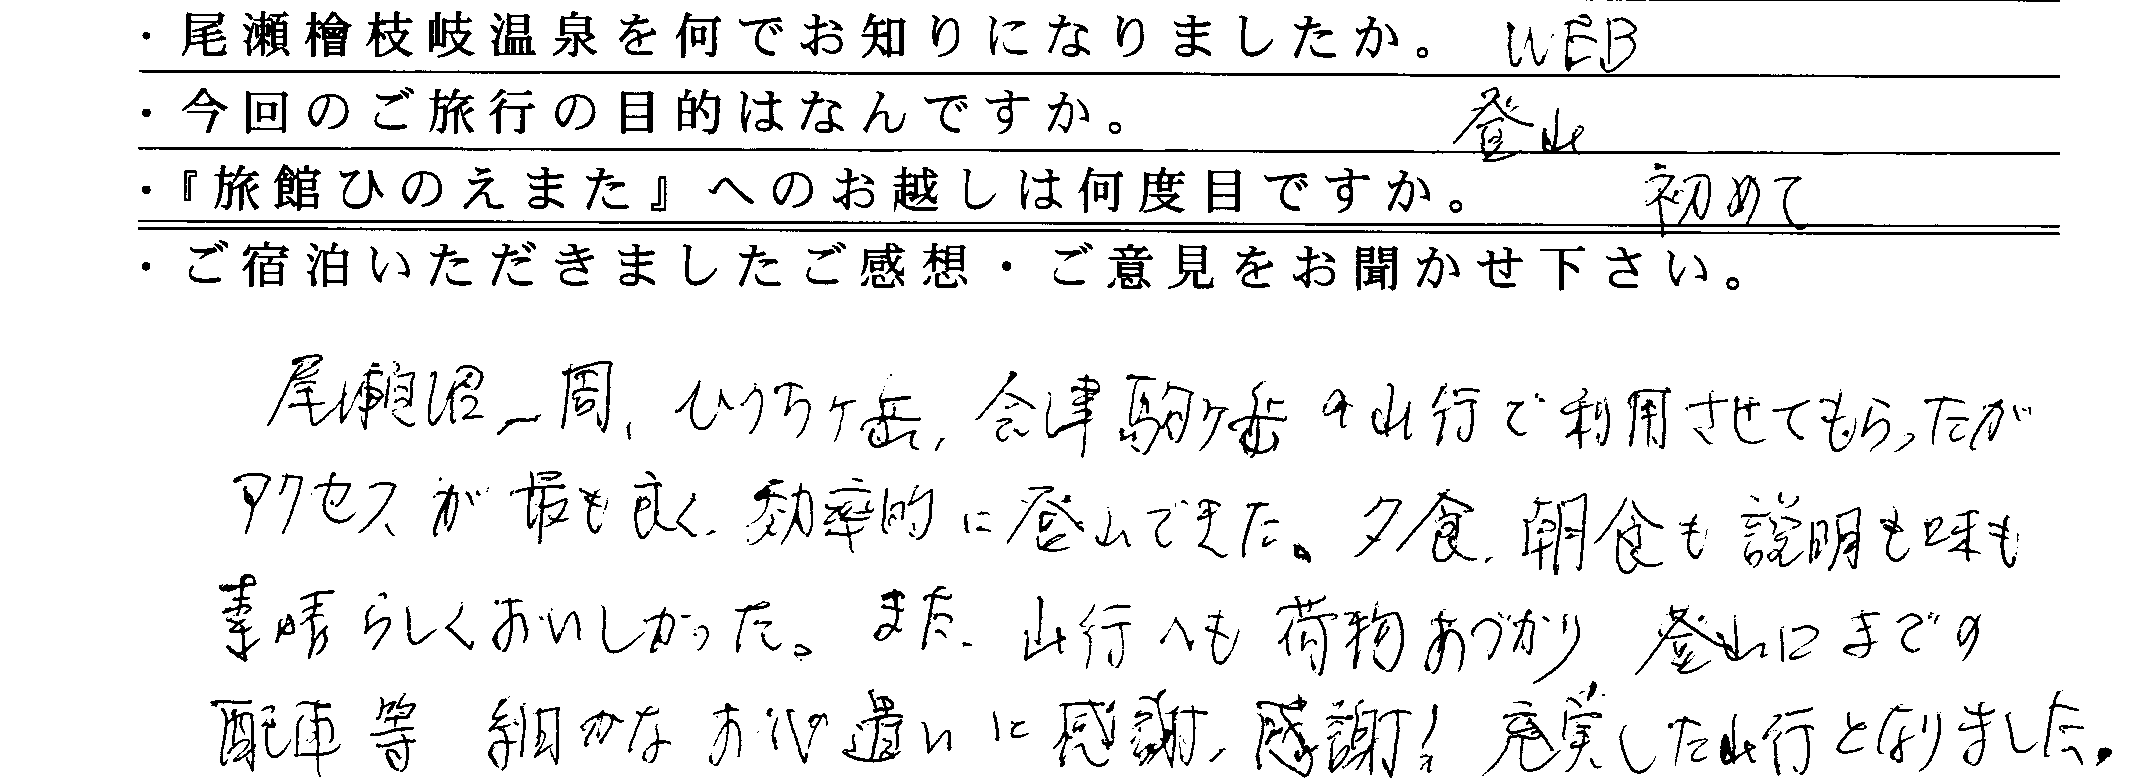 ・尾瀬檜枝岐温泉を何でお知りになりましたか。 WEB
・今回のご旅行の目的はなんですか。 登山
・『旅館ひのえまた』へのお越しは何度目ですか。 初めて
・ご宿泊いただきましたご感想・ご意見をお聞かせ下さい。
尾瀬沼一周、ひうちヶ岳、会津駒ヶ岳の山行で利用させてもらったが
アクセスが最も良く、効率的に登山できた。夕食、朝食も説明も味も
素晴らしくおいしかった。また、山行へも荷物あづかり 登山口までの
配車等 細かなお心遣いに感謝、感謝！充実した山行となりました。